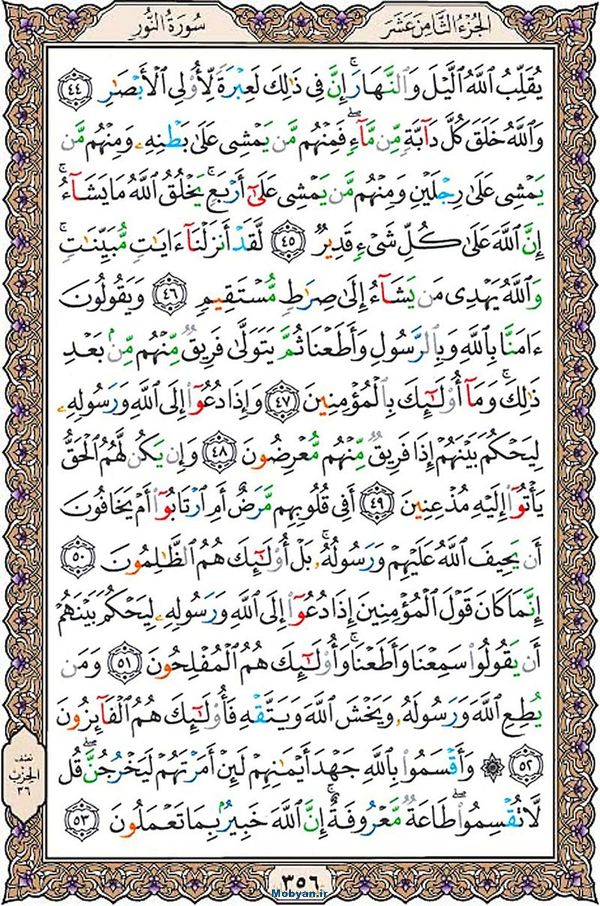 الجُزءُ الثَّامِنَ عَشَرَ
سُورَةُ النُّورِ
يُقَلِّبُ ٱللَّهُ ٱلَّيۡلَ وَٱلنَّهَارَۚ إِنَّ فِي ذَٰلِكَ لَعِبۡرَةٗ لِّأُوْلِي ٱلۡأَبۡصَٰرِ ٤٤
وَٱللَّهُ خَلَقَ كُلَّ دَآبَّةٖ مِّن مَّآءٖۖ فَمِنۡهُم مَّن يَمۡشِي عَلَىٰ بَطۡنِهِۦ وَمِنۡهُم مَّن
يَمۡشِي عَلَىٰ رِجۡلَيۡنِ وَمِنۡهُم مَّن يَمۡشِي عَلَىٰٓ أَرۡبَعٖۚ يَخۡلُقُ ٱللَّهُ مَا يَشَآءُۚ
إِنَّ ٱللَّهَ عَلَىٰ كُلِّ شَيۡءٖ قَدِيرٞ ٤٥ لَّقَدۡ أَنزَلۡنَآ ءَايَٰتٖ مُّبَيِّنَٰتٖۚ
وَٱللَّهُ يَهۡدِي مَن يَشَآءُ إِلَىٰ صِرَٰطٖ مُّسۡتَقِيمٖ ٤٦ وَيَقُولُونَ
ءَامَنَّا بِٱللَّهِ وَبِٱلرَّسُولِ وَأَطَعۡنَا ثُمَّ يَتَوَلَّىٰ فَرِيقٞ مِّنۡهُم مِّنۢ بَعۡدِ
ذَٰلِكَۚ وَمَآ أُوْلَٰٓئِكَ بِٱلۡمُؤۡمِنِينَ ٤٧ وَإِذَا دُعُوٓاْ إِلَى ٱللَّهِ وَرَسُولِهِۦ
لِيَحۡكُمَ بَيۡنَهُمۡ إِذَا فَرِيقٞ مِّنۡهُم مُّعۡرِضُونَ ٤٨ وَإِن يَكُن لَّهُمُ ٱلۡحَقُّ
يَأۡتُوٓاْ إِلَيۡهِ مُذۡعِنِينَ ٤٩ أَفِي قُلُوبِهِم مَّرَضٌ أَمِ ٱرۡتَابُوٓاْ أَمۡ يَخَافُونَ
أَن يَحِيفَ ٱللَّهُ عَلَيۡهِمۡ وَرَسُولُهُۥۚ بَلۡ أُوْلَٰٓئِكَ هُمُ ٱلظَّٰلِمُونَ ٥٠
إِنَّمَا كَانَ قَوۡلَ ٱلۡمُؤۡمِنِينَ إِذَا دُعُوٓاْ إِلَى ٱللَّهِ وَرَسُولِهِۦ لِيَحۡكُمَ بَيۡنَهُمۡ
أَن يَقُولُواْ سَمِعۡنَا وَأَطَعۡنَاۚ وَأُوْلَٰٓئِكَ هُمُ ٱلۡمُفۡلِحُونَ ٥١ وَمَن
يُطِعِ ٱللَّهَ وَرَسُولَهُۥ وَيَخۡشَ ٱللَّهَ وَيَتَّقۡهِ فَأُوْلَٰٓئِكَ هُمُ ٱلۡفَآئِزُونَ
٥٢ ۞ وَأَقۡسَمُواْ بِٱللَّهِ جَهۡدَ أَيۡمَٰنِهِمۡ لَئِنۡ أَمَرۡتَهُمۡ لَيَخۡرُجُنَّۖ قُل
لَّا تُقۡسِمُواْۖ طَاعَةٞ مَّعۡرُوفَةٌۚ إِنَّ ٱللَّهَ خَبِيرُۢ بِمَا تَعۡمَلُونَ ٥٣
نصف
الحزب
٣٦
٣٥٦
Mobyan.ir